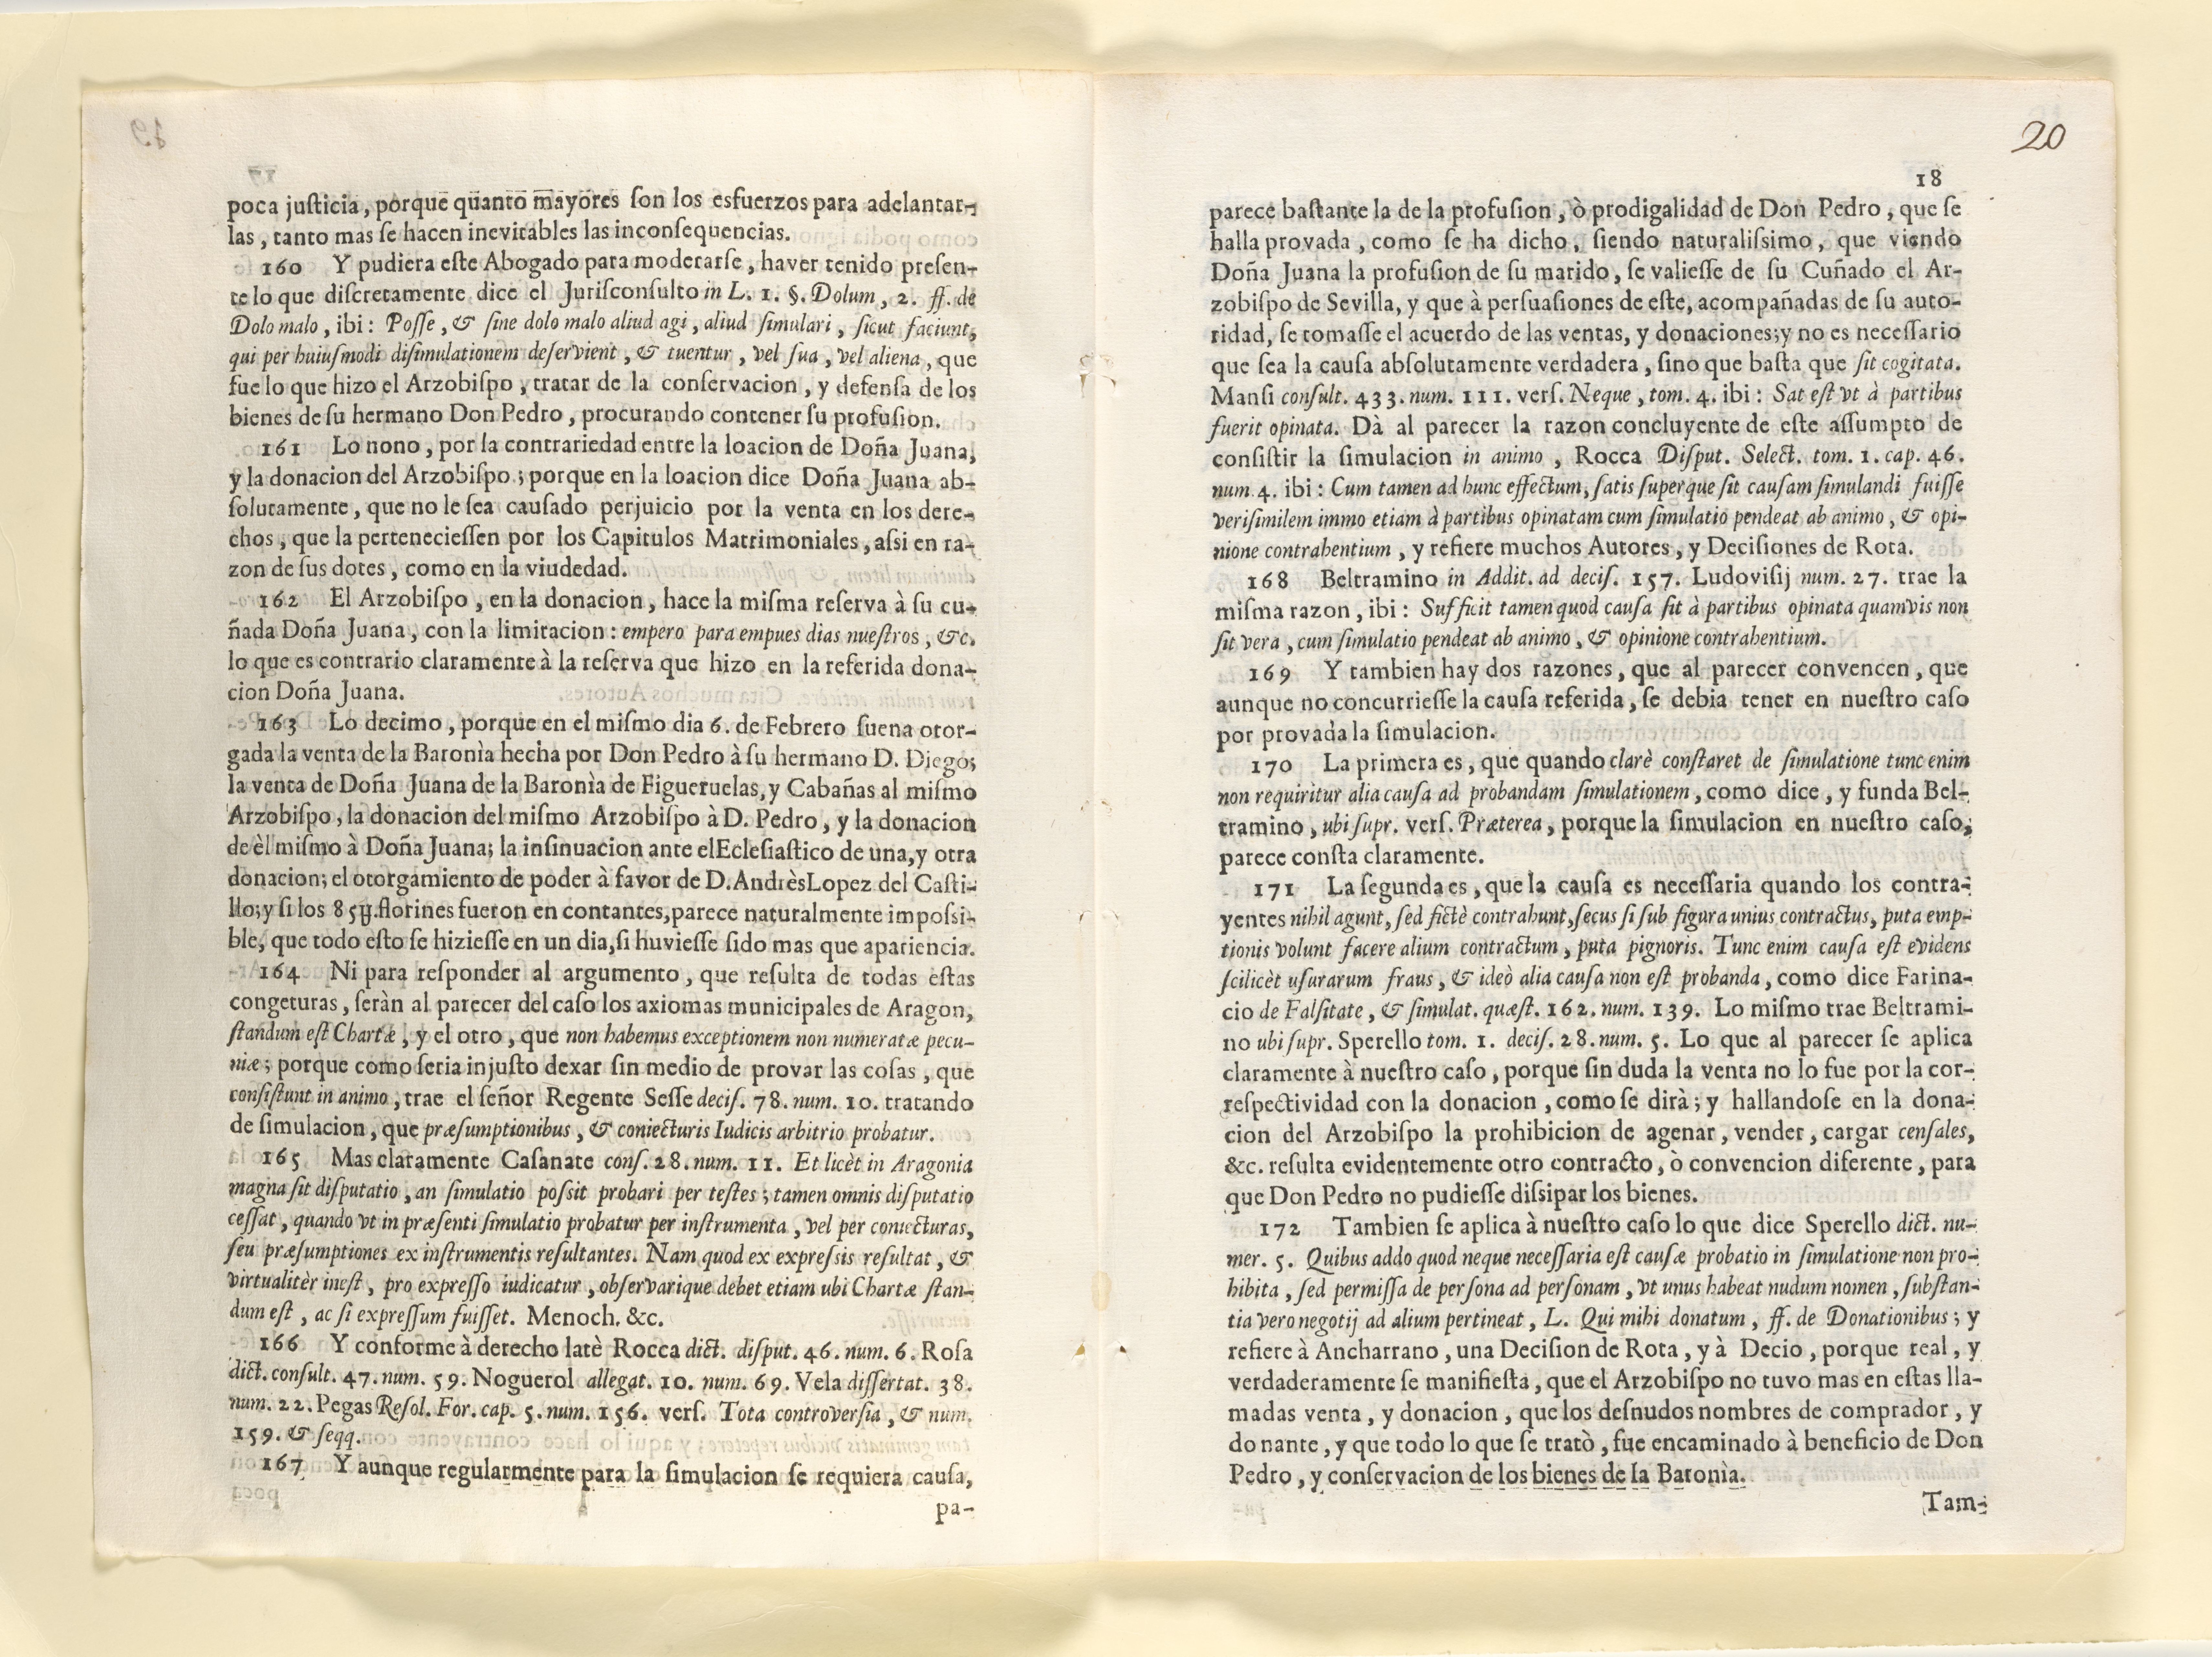 poca juſticia, porque quanto mayores ſon los esfuerzos para adelantar-
las, tanto mas ſe hacen inevitables las inconſequencias.
160 Y pudiera eſte Abogado para moderarſe, haver tenido preſen-
te lo que diſcretamente dice el Juriſconſulto in L. 1. §. Dolum, 2. ff. de
Dolo malo, ibi: Poſſe, & ſine dolo malo aliud agi, aliud ſimulari, ſicut faciunt,
qui per huiuſmodi diſimulationem deſervient, & tuentur, vel ſua, vel aliena, que
fue lo que hizo el Arzobiſpo, tratar de la conſervacion, y defenſa de los
bienes de ſu hermano Don Pedro, procurando contener ſu profuſion.
161 Lo nono, por la contrariedad entre la loacion de Doña Juana,
y la donacion del Arzobiſpo; porque en la loacion dice Doña Juana ab-
ſolutamente, que no le ſea cauſado perjuicio por la venta en los dere-
chos, que la pertenecieſſen por los Capitulos Matrimoniales, aſsi en ra-
zon de ſus dotes, como en la viudedad.
162 El Arzobiſpo, en la donacion, hace la miſma reſerva à ſu cu-
ñada Doña Juana, con la limitacion: empero para empues dias nueſtros, &c.
lo que es contrario claramente à la reſerva que hizo en la referida dona-
cion Doña Juana.
163 Lo decimo, porque en el miſmo dia 6. de Febrero ſuena otor-
gada la venta de la Baronìa hecha por Don Pedro à ſu hermano D. Diego;
la venta de Doña Juana de la Baronìa de Figueruelas, y Cabañas al miſmo
Arzobiſpo, la donacion del miſmo Arzobiſpo à D. Pedro, y la donacion
de èl miſmo à Doña Juana; la inſinuacion ante el Ecleſiaſtico de una, y otra
donacion; el otorgamiento de poder à favor de D. Andrès Lopez del Caſti-
llo; y ſi los 85U. florines fueron en contantes, parece naturalmente impoſsi-
ble, que todo eſto ſe hizieſſe en un dia, ſi huvieſſe ſido mas que apariencia.
164 Ni para reſponder al argumento, que reſulta de todas eſtas
congeturas, ſeràn al parecer del caſo los axiomas municipales de Aragon,
ſtandum eſt Chartæ, y el otro, que non habemus exceptionem non numeratæ pecu-
niæ; porque como ſeria injuſto dexar ſin medio de provar las coſas, que
conſiſtunt in animo, trae el ſeñor Regente Seſſe deciſ. 78. num. 10. tratando
de ſimulacion, que præſumptionibus, & coniecturis Iudicis arbitrio probatur.
165 Mas claramente Caſanate conſ. 28. num. 11. Et licèt in Aragonia
magna ſit diſputatio, an ſimulatio poſsit probari per teſtes; tamen omnis diſputatio
ceſſat, quando vt in præſenti ſimulatio probatur per inſtrumenta, vel per coniecturas,
ſeu præſumptiones ex inſtrumentis reſultantes. Nam quod ex expreſsis reſultat, &
virtualitèr ineſt, pro expreſſo iudicatur, obſervarique debet etiam ubi Chartæ ſtan-
dum eſt, ac ſi expreſſum fuiſſet. Menoch. &c.
166 Y conforme à derecho latè Rocca dict. diſput. 46. num. 6. Roſa
dict. conſult. 47. num. 59. Noguerol allegat. 10. num. 69. Vela diſſertat. 38.
num. 22. Pegas Reſol. For. cap. 5. num. 156. verſ. Tota controverſia, & num.
159. & ſeqq.
167 Y aunque regularmente para la ſimulacion ſe requiera cauſa,
pa-
20
18
parece baſtante la de la profuſion, ò prodigalidad de Don Pedro, que ſe
halla provada, como ſe ha dicho, ſiendo naturaliſsimo, que viendo
Doña Juana la profuſion de ſu marido, ſe valieſſe de ſu Cuñado el Ar-
zobiſpo de Sevilla, y que à perſuaſiones de eſte, acompañadas de ſu auto-
ridad, ſe tomaſſe el acuerdo de las ventas, y donaciones; y no es neceſſario
que ſea la cauſa abſolutamente verdadera, ſino que baſta que ſit cogitata.
Manſi conſult. 433. num. 111. verſ. Neque, tom. 4. ibi: Sat eſt vt à partibus
fuerit opinata. Dà al parecer la razon concluyente de eſte aſſumpto de
conſiſtir la ſimulacion in animo, Rocca Diſput. Select. tom. 1. cap. 46.
num. 4. ibi: Cum tamen ad hunc effectum, ſatis ſuperque ſit cauſam ſimulandi fuiſſe
veriſimilem immo etiam à partibus opinatam cum ſimulatio pendeat ab animo, & opi-
nione contrahentium, y refiere muchos Autores, y Deciſiones de Rota.
168 Beltramino in Addit. ad deciſ. 157. Ludoviſij num. 27. trae la
miſma razon, ibi: Sufficit tamen quod cauſa ſit à partibus opinata quamvis non
ſit vera, cum ſimulatio pendeat ab animo, & opinione contrahentium.
169 Y tambien hay dos razones, que al parecer convencen, que
aunque no concurrieſſe la cauſa referida, ſe debia tener en nueſtro caſo
por provada la ſimulacion.
170 La primera es, que quando clarè conſtaret de ſimulatione tunc enim
non requiritur alia cauſa ad probandam ſimulationem, como dice, y funda Bel-
tramino, ubi ſupr. verſ. Præterea, porque la ſimulacion en nueſtro caſo,
parece conſta claramente.
171 La ſegunda es, que la cauſa es neceſſaria quando los contra-
yentes nihil agunt, ſed fictè contrahunt, ſecus ſi ſub figura unius contractus, puta emp-
tionis volunt facere alium contractum, puta pignoris. Tunc enim cauſa eſt evidens
ſcilicèt uſurarum fraus, & ideò alia cauſa non eſt probanda, como dice Farina-
cio de Falſitate, & ſimulat. quæſt. 162. num. 139. Lo miſmo trae Beltrami-
no ubi ſupr. Sperello tom. 1. deciſ. 28. num. 5. Lo que al parecer ſe aplica
claramente à nueſtro caſo, porque ſin duda la venta no lo fue por la cor-
reſpectividad con la donacion, como ſe dirà; y hallandoſe en la dona-
cion del Arzobiſpo la prohibicion de agenar, vender, cargar cenſales,
&c. reſulta evidentemente otro contracto, ò convencion diferente, para
que Don Pedro no pudieſſe diſsipar los bienes.
172 Tambien ſe aplica à nueſtro caſo lo que dice Sperello dict. nu-
mer. 5. Quibus addo quod neque neceſſaria eſt cauſæ probatio in ſimulatione non pro-
hibita, ſed permiſſa de perſona ad perſonam, vt unus habeat nudum nomen, ſubſtan-
tia vero negotij ad alium pertineat, L. Qui mihi donatum, ff. de Donationibus; y
refiere à Ancharrano, una Deciſion de Rota, y à Decio, porque real, y
verdaderamente ſe manifieſta, que el Arzobiſpo no tuvo mas en eſtas lla-
madas venta, y donacion, que los deſnudos nombres de comprador, y
donante, y que todo lo que ſe tratò, fue encaminado à beneficio de Don
Pedro, y conſervacion de los bienes de la Baronìa.
Tam-